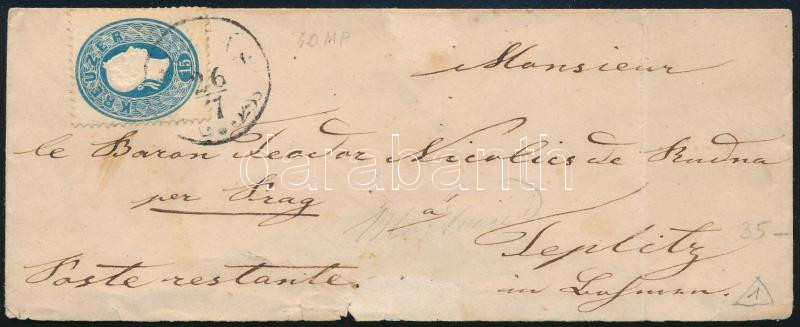 KREUZER 15
26/7
40 MP
Monsieur
le Baron Teodor Nicolics de Rudna
per Prag à Teplitz
Poste restante. in Bohmen.
35-
1
darabanth